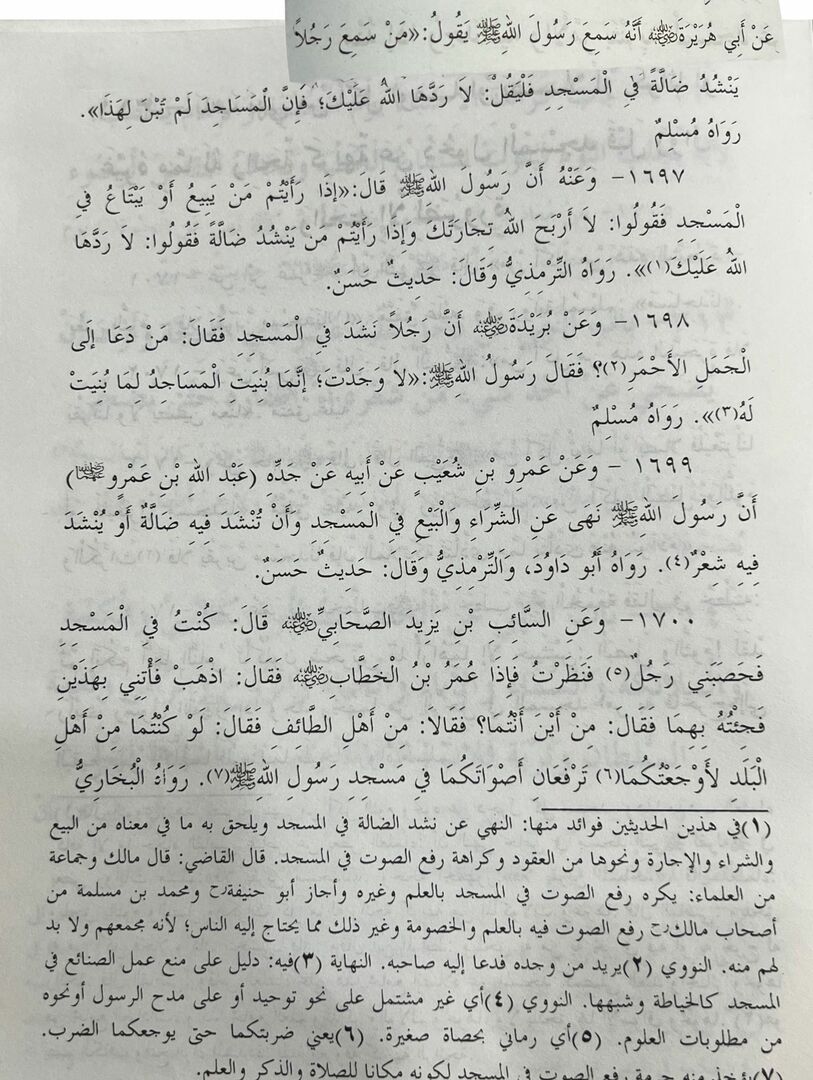 عَنْ أَبِي هُرَيْرَةَ رضي الله عنه أَنَّهُ سَمِعَ رَسُولَ اللهِ ﷺ يَقُولُ: «مَنْ سَمِعَ رَجُلاً
يَنْشُدُ ضَالَّةً فِي الْمَسْجِدِ فَلْيَقُلْ: لاَ رَدَّهَا اللهُ عَلَيْكَ؛ فَإِنَّ الْمَسَاجِدَ لَمْ تُبْنَ لِهَذَا».
رَوَاهُ مُسْلِمٌ
١٦٩٧- وَعَنْهُ أَنَّ رَسُولَ اللهِ ﷺ قَالَ: «إِذَا رَأَيْتُمْ مَنْ يَبِيعُ أَوْ يَبْتَاعُ فِي
الْمَسْجِدِ فَقُولُوا: لاَ أَرْبَحَ اللهُ تِجَارَتَكَ وَإِذَا رَأَيْتُمْ مَنْ يَنْشُدُ ضَالَّةً فَقُولُوا: لاَ رَدَّهَا
اللهُ عَلَيْكَ(١)». رَوَاهُ التِّرْمِذِيُّ وَقَالَ: حَدِيثٌ حَسَنٌ.
١٦٩٨- وَعَنْ بُرَيْدَةَ رضي الله عنه أَنَّ رَجُلاً نَشَدَ فِي الْمَسْجِدِ فَقَالَ: مَنْ دَعَا إِلَى
الْجَمَلِ الأَحْمَرِ(٢)؟ فَقَالَ رَسُولُ اللهِ ﷺ: «لاَ وَجَدْتَ؛ إِنَّمَا بُنِيَتِ الْمَسَاجِدُ لِمَا بُنِيَتْ
لَهُ(٣)». رَوَاهُ مُسْلِمٌ
١٦٩٩ - وَعَنْ عَمْرِو بْنِ شُعَيْبٍ عَنْ أَبِيهِ عَنْ جَدِّهِ (عَبْدِ اللهِ بْنِ عَمْرٍو رضي الله عنهما)
أَنَّ رَسُولَ اللهِ ﷺ نَهَى عَنِ الشِّرَاءِ وَالْبَيْعِ فِي الْمَسْجِدِ وَأَنْ تُنْشَدَ فِيهِ ضَالَّةٌ أَوْ يُنْشَدَ
فِيهِ شِعْرٌ(٤). رَوَاهُ أَبُو دَاوُدَ، وَالتِّرْمِذِيُّ وَقَالَ: حَدِيثٌ حَسَنٌ.
١٧٠٠- وَعَنِ السَّائِبِ بْنِ يَزِيدَ الصَّحَابِيِّ رضي الله عنه قَالَ: كُنْتُ فِي الْمَسْجِدِ
فَحَصَبَنِي رَجُلٌ(٥) فَنَظَرْتُ فَإِذَا عُمَرُ بْنُ الْخَطَّابِ رضي الله عنه فَقَالَ: اذْهَبْ فَأْتِنِي بِهَذَيْنِ
فَجِئْتُهُ بِهِمَا فَقَالَ: مِنْ أَيْنَ أَنْتُمَا؟ فَقَالاَ: مِنْ أَهْلِ الطَّائِفِ فَقَالَ: لَوْ كُنْتُمَا مِنْ أَهْلِ
الْبَلَدِ لأَوْجَعْتُكُمَا(٦) تَرْفَعَانِ أَصْوَاتَكُمَا فِي مَسْجِدِ رَسُولِ اللهِ ﷺ(٧). رَوَاهُ الْبُخَارِيُّ
(١)في هذين الحديثين فوائد منها: النهي عن نشد الضالة في المسجد ويلحق به ما في معناه من البيع
والشراء والإجارة ونحوها من العقود وكراهة رفع الصوت في المسجد. قال القاضي: قال مالك وجماعة
من العلماء: يكره رفع الصوت في المسجد بالعلم وغيره وأجاز أبو حنيفة رح ومحمد بن مسلمة من
أصحاب مالك رح رفع الصوت فيه بالعلم والخصومة وغير ذلك مما يحتاج إليه الناس؛ لأنه مجمعهم ولا بد
لهم منه. النووي (٢)يريد من وجده فدعا إليه صاحبه. النهاية (٣)فيه: دليل على منع عمل الصنائع في
المسجد كالخياطة وشبهها. النووي (٤)أي غير مشتمل على نحو توحيد أو على مدح الرسول أونحوه
من مطلوبات العلوم. (٥)أي رماني بحصاة صغيرة. (٦)يعني ضربتكما حتى يوجعكما الضرب.
(٧)يؤخذ منه حرمة رفع الصوت في المسجد لكونه مكانا للصلاة والذكر والعلم.